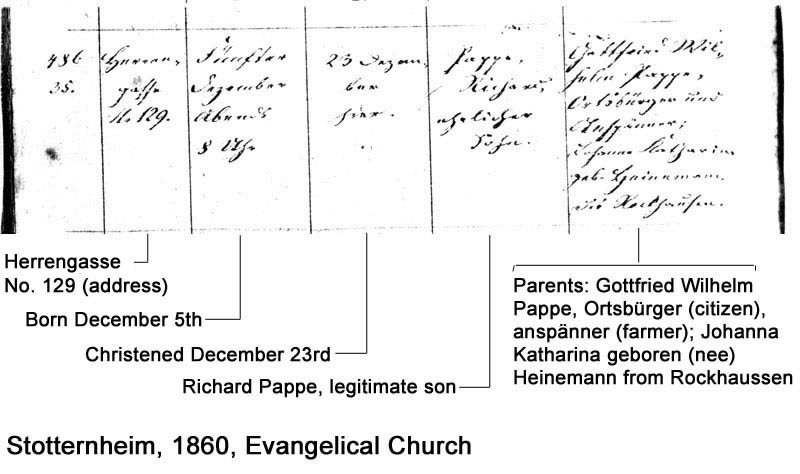 486
35.
Herren-
gasse
No 129.
Fünfter
Dezember
Abends
8 Uhr
23 Dezem-
ber
hier.
Pappe,
Richard,
ehelicher
Sohn.
Gottfried Wil-
helm Pappe,
Ortsbürger und
Anspänner;
Johanna Katharina
geb. Heinemann
aus Rockhausen.
Herrengasse
No. 129 (address)
Born December 5th
Christened December 23rd
Richard Pappe, legitimate son
Parents: Gottfried Wilhelm
Pappe, Ortsbürger (citizen),
anspänner (farmer); Johanna
Katharina geboren (nee)
Heinemann from Rockhaussen
Stotternheim, 1860, Evangelical Church